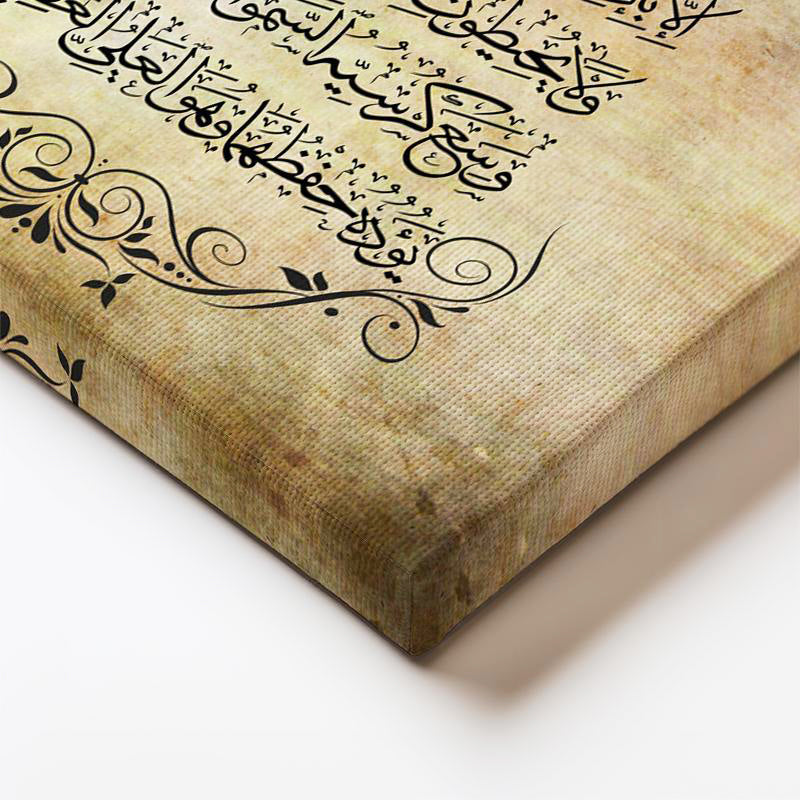 إِلَّا
وَلَا يُحِيطُونَ
وَسِعَ كُرْسِيُّهُ السَّمَوَا
يَؤُدُهُ حِفْظُهُمَا وَهُوَ الْعَلِيُّ الْعَظِ